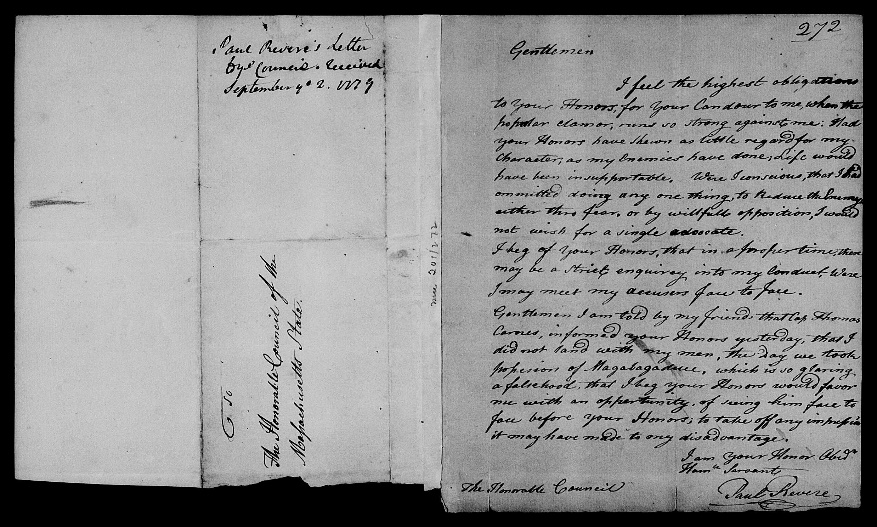 Paul Revere's Letter
by ye Council. Received
September ye 2. 1779
To
The Honorable Council of the
Massachusetts State.
mcc 201/272
272
Gentlemen
I feel the highest obligations
to your Honors, for your Candour to me, when the
popular clamor, runs so strong against me: Had
your Honors have shewn as little regard for my
Character, as my Enemies have done, Life would
have been insupportable. Were I conscious, that I had
ommitted doing any one thing, to Reduce the Enemy
either thro fear, or by willfull opposition, I would
not wish for a single advocate.
I beg of your Honors, that in a proper time, there
may be a Strict enquirey into my Conduct, Were
I may meet my accusers face to face.
Gentlemen I am told by my friends that Cap Thomas
Carnes, informed your Honors yesterday, that I
did not land with my men, the day we took
possesion of Magabagaduce, which is so glaring
a falsehood, that I beg your Honors would favor
me with an oppertunity, of seeing him face to
face before your Honors; to take off any impression
it may have made to my disadvantage.
I am your Honor Obidt
Humle Servant
Paul Revere
The Honorable Council